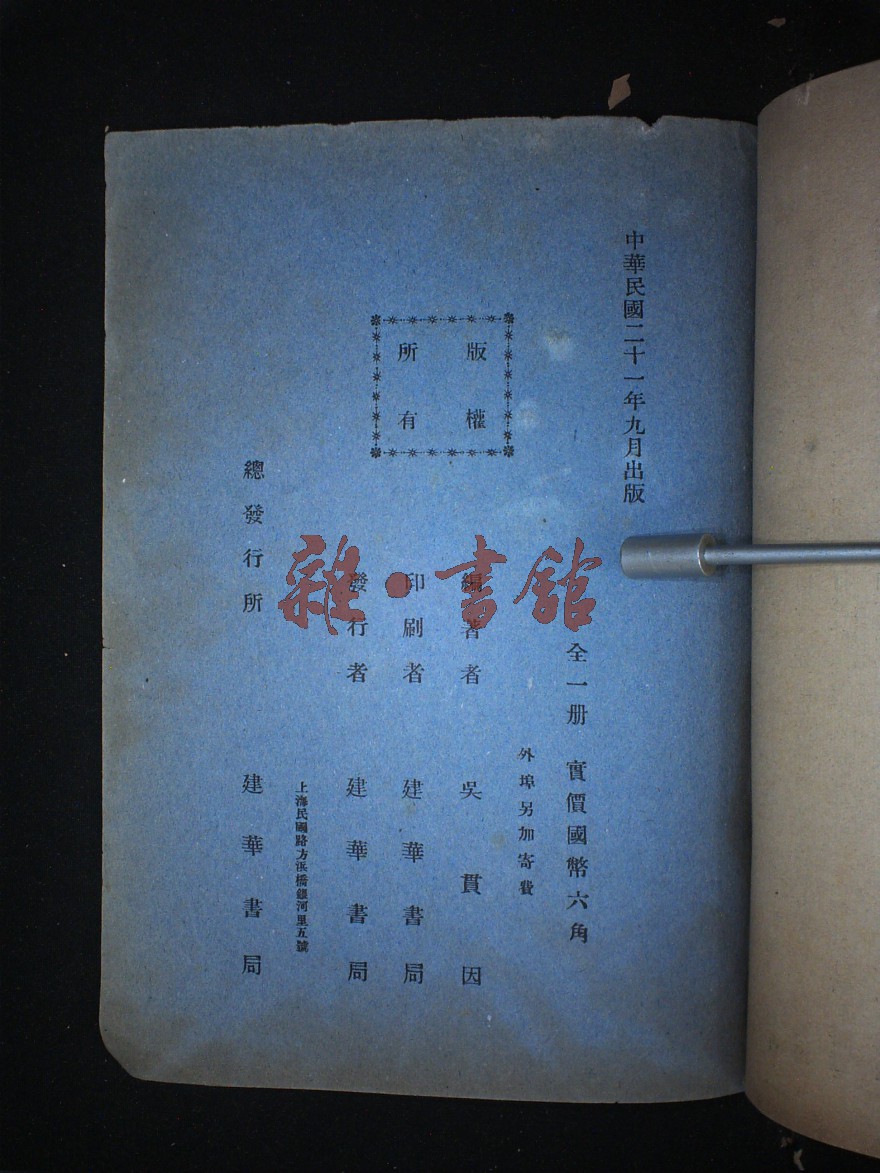 中華民國二十一年九月出版
版權
所有
全一册 實價國幣六角
外埠另加寄費
編著者 吳貫因
印刷者 建華書局
發行者 建華書局
上海民國路方浜橋銀河里五號
總發行所 建華書局
雜·書館